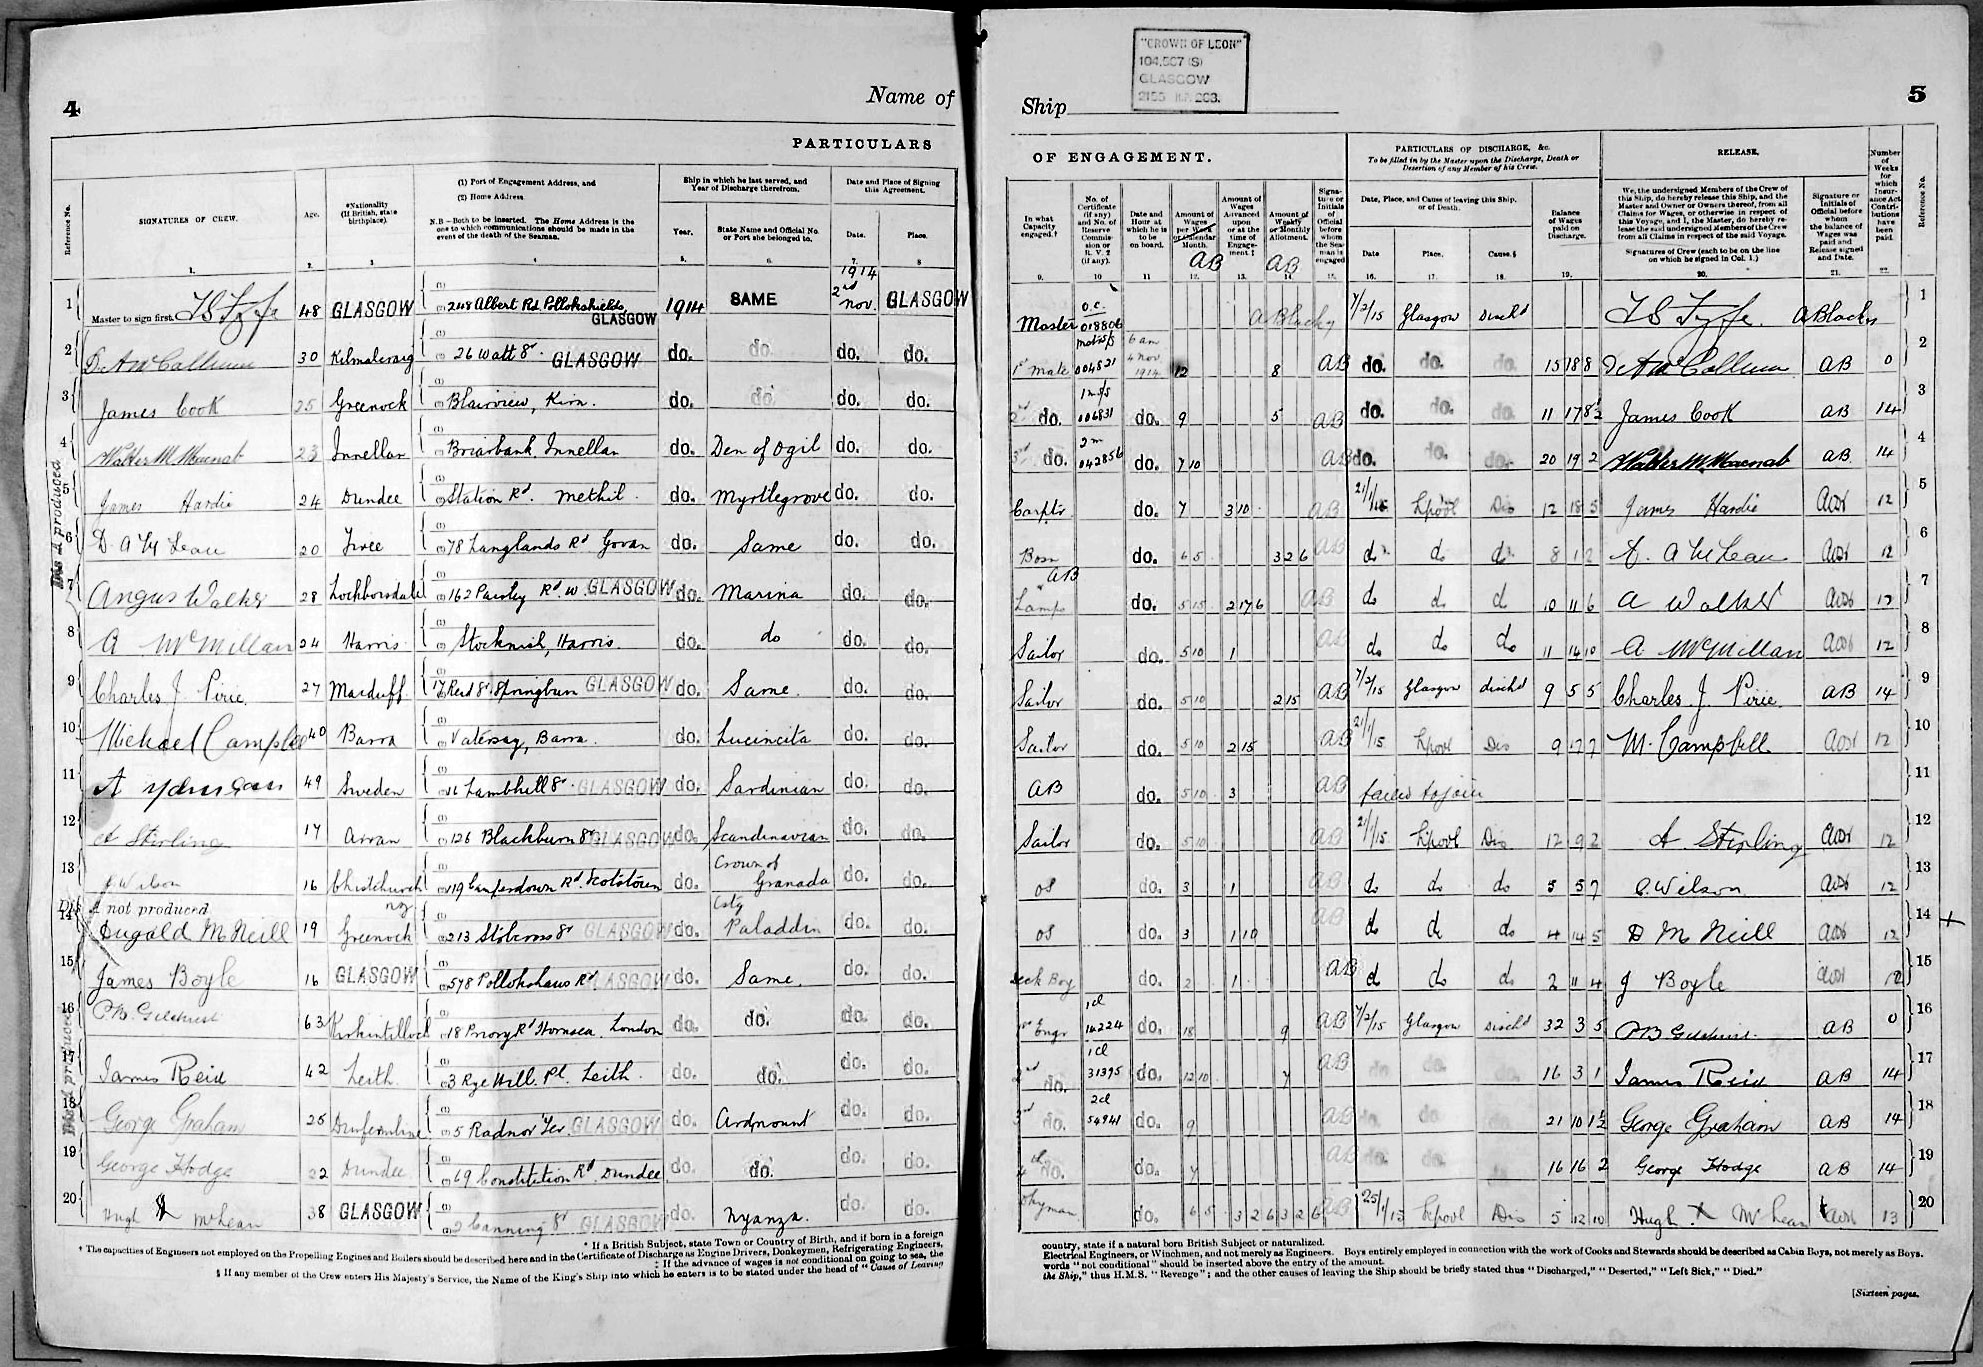 4
Name of
PARTICULARS
Reference No.
SIGNATURES OF CREW.
Age.
*Nationality
(If British, state
birthplace).
(1) Port of Engagement Address, and
(2) Home Address
N.B —Both to be inserted. The Home Address is the
one to which communications should be made in the
event of the death of the Seaman.
Ship in which he last served, and
Year of Discharge therefrom.
Year.
State Name and Official No.
or Port she belonged to.
Date and Place of Signing
this Agreement.
Date.
Place.
1. 2. 3 4 5. 6. 7. 8
1914
1 Master to sign first. 48 GLASGOW (1) (2) 248 Albert Rd Pollokshields GLASGOW 1914 SAME 2nd Nov. GLASGOW
2 30 (1) 26 Watt St. GLASGOW do. do. do. do.
3 James Cook 25 Greenock (1) (2) Blairview, Kirn. do. do. do. do.
4 Walter M Macnab 23 Innellan (1) (2) Briarbank, Innellan do. Den of Ogil do. do.
5 James Hardie 24 Dundee (1) (2) Station Rd. Methil. do. Myrtlegrove do. do.
6 D. A McLean 20 Tiree (1) (2) 78 Langlands Rd Govan do. Same do. do.
7 Angus Walker 28 Lochboisdale (1) (2) 162 Paisley Rd. W. GLASGOW do. Marina do. do.
8 A McMillan 24 Harris (1) (2) Stocknish, Harris. do. do do. do.
9 Charles J. Pirie. 27 Macduff. 17 Reid St. Springburn GLASGOW do. Same. do. do.
10 Michael Campbell 40 Barra (1) (2) Vatersay, Barra. do. Lucincita do. do.
11 49 Sweden (1) (2) 16 Lambhill St. GLASGOW do. Sardinian do. do.
12 A Stirling 17 Arran (1) (2) 126 Blackburn St GLASGOW do. Scandinavian do. do.
13 Wilson 16 Christchurch NZ (1) (2) 119 Camperdown Rd. Scotstoun do. Crown of Granada do. do.
Dis A not produced
14 Dugald McNeill 19 Greenock (1) (2) 213 Stobcross St GLASGOW do. Paladdin do. do.
15 James Boyle 16 GLASGOW (1) (2) 578 Pollokshaws Rd GLASGOW do. Same. do. do.
16 P B Gilchrist 63 Kirkintilloch (1) (2) 18 Priory Rd Hornsea. London do. do. do. do.
17 James Reid 42 Leith (1) (2) 3 Rye Hill. Pl. Leith. do. do. do. do.
18 George Graham 25 Dunfermline (1) (2) 5 Radnor Ter. GLASGOW do. Ardmount do. do.
19 George Hodge 22 Dundee (1) (2) 69 Constitution Rd. Dundee do. do. do. do.
20 Hugh X McLean 38 GLASGOW (1) (2) 2 Canning St GLASGOW do. Nyanza. do. do.
Dis A produced
* If a British Subject, state Town or Country of Birth, and if born in a foreign
† The capacities of Engineers not employed on the Propelling Engines and Boilers should be described here and in the Certificate of Discharge as Engine Drivers, Donkeymen, Refrigerating Engineers,
‡ If the advance of wages is not conditional on going to sea, the
§ If any member of the Crew enters His Majesty's Service, the Name of the King's Ship into which he enters is to be stated under the head of "Cause of Leaving
"CROWN OF LEON"
104,567 (S)
GLASGOW
5
Ship
OF ENGAGEMENT.
PARTICULARS OF DISCHARGE, &c.
To be filled in by the Master upon the Discharge, Death or
Desertion of any Member of his Crew.
RELEASE,
Number
of
Weeks
for
which
Insur-
ance Act
Contri-
butions
have
been
paid.
Reference No.
In what
Capacity
engaged.†
No. of
Certificate
(if any)
and No. of
Reserve
Commis-
sion or
R. V. 2
(if any).
Date and
Hour at
which he is
to be
on board.
Amount of
Wages
per Week
or Calendar
Month.
Amount of
Wages
Advanced
upon
or at the
time of
Engage-
ment.‡
Amount of
Weekly
or Monthly
Allotment.
Signa-
ture or
Initials
of
Official
before
whom
the Sea-
man is
engaged
Date, Place, and Cause of leaving this Ship,
or of Death.
Date Place. Cause.§
Balance
of Wages
paid on
Discharge.
We, the undersigned Members of the Crew of
this Ship, do hereby release this Ship, and the
Master and Owner or Owners thereof, from all
Claims for Wages, or otherwise in respect of
this Voyage, and I, the Master, do hereby re-
lease the said undersigned Members of the Crew
from all Claims in respect of the said Voyage.
Signatures of Crew (each to be on the line
on which he signed in Col. 1.)
Signature or
Initials of
Official before
whom
the balance of
Wages was
paid and
Release signed
and Date.
AB AB
9. 10 11 12. 13. 14. 15. 16. 17. 18. 19. 20. 21. 22
Master O.C. 018806 7/2/15 Glasgow Disch'd 1
1st Mate 004821 6 am 4 Nov 1914 12 8 AB do. do. do. 15 18 8 AB 0 2
2nd do. 006831 do. 9 5 AB do. do. do. 11 17 8½ James Cook AB 14 3
3rd do. 2m 042856 do. 7 10 AB do. do. do. 20 19 2 Walter M. Macnab AB. 14 4
Carptr do. 7 3 10 AB 21/1/15 L'pool Dis 12 18 5 James Hardie 12 5
Bosn do. 6 5 3 2 6 AB do do do 8 1 2 A McLean 12 6
AB
Lamps do. 5 15 2 17 6 AB do do do 10 11 6 A Walker 12 7
Sailor do. 5 10 1 AB do do do 11 14 10 A McMillan 12 8
Sailor do. 5 10 2 15 AB 7/2/15 Glasgow disch'd 9 5 5 Charles J. Pirie. AB 14 9
Sailor do. 5 10 2 15 AB 21/1/15 L'pool Dis 9 17 7 M. Campbell 12 10
AB do. 5 10 3 AB failed to join 11
Sailor do. 5 10 AB 21/1/15 L'pool Dis 12 9 2 A Stirling 12 12
OS do. 3 1 AB do do do 5 5 7 Wilson 12 13
OS do. 3 1 10 AB do do do 4 14 5 D McNeill 12 14 +
Deck Boy do. 2 1 AB do do do 2 11 4 J Boyle 15
1st Engr 1cl 14224 do. 18 9 AB 7/2/15 Glasgow Disch'd 32 3 5 P B Gilchrist. AB 0 16
2nd do. 1cl 31395 do. 12 10 7 AB do. do. 16 3 1 James Reid AB 14 17
3rd do. 2cl 54941 do. 9 AB do. do. do. 21 10 1½ George Graham AB 14 18
4th do. do. 7 AB do. do. 16 16 2 George Hodge AB 14 19
Dkyman do. 6 5 3 2 6 3 2 6 AB 25/1/15 L'pool Dis 5 12 10 Hugh X McLean 13 20
country, state if a natural born British Subject or naturalized.
Electrical Engineers, or Winchmen, and not merely as Engineers. Boys entirely employed in connection with the work of Cooks and Stewards should be described as Cabin Boys, not merely as Boys.
words "not conditional" should be inserted above the entry of the amount.
the Ship," thus H.M.S. "Revenge"; and the other causes of leaving the Ship should be briefly stated thus "Discharged," "Deserted," "Left Sick," "Died."
[Sixteen pages.